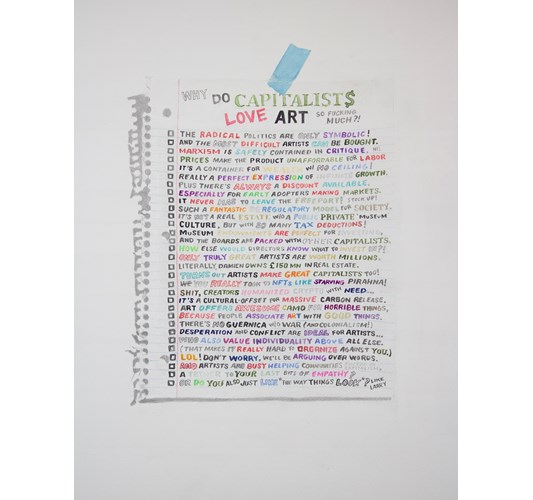 WHY DO CAPITALIST$
LOVE ART SO FUCKING
MUCH?!
THE RADICAL POLITICS ARE ONLY SYMBOLIC!
AND THE MOST DIFFICULT ARTISTS CAN BE BOUGHT.
MARXISM IS SAFELY CONTAINED IN CRITIQUE.
PRICES MAKE THE PRODUCT UNAFFORDABLE FOR LABOR
IT'S A CONTAINER FOR WEALTH W/ NO CEILING!
REALLY A PERFECT EXPRESSION OF INFINITE GROWTH.
PLUS THERE'S ALWAYS A DISCOUNT AVAILABLE,
ESPECIALLY FOR EARLY ADOPTERS MAKING MARKETS.
IT NEVER HAS TO LEAVE THE FREEPORT! STOCK UP!
SUCH A FANTASTIC REGULATORY MODEL FOR SOCIETY.
IT'S NOT A REAL ESTATE W/O A PUBLIC PRIVATE MUSEUM
CULTURE, BUT WITH SO MANY TAX DEDUCTIONS!
MUSEUM ENDOWMENTS ARE PERFECT FOR INVESTING,
AND THE BOARDS ARE PACKED WITH OTHER CAPITALISTS.
HOW ELSE WOULD DIRECTORS KNOW WHAT TO INVEST IN?!
ONLY TRULY GREAT ARTISTS ARE WORTH MILLIONS.
LITERALLY, DAMIEN OWNS £150 MN IN REAL ESTATE.
TURNS OUT ARTISTS MAKE GREAT CAPITALISTS TOO!
WE REALLY TOOK TO NFTs LIKE STARVING PIRANHA!
SHIT, CREATORS HUMANIZED CRYPTO WITH NEED...
IT'S A CULTURAL-OFFSET FOR MASSIVE CARBON RELEASE.
ART OFFERS AWESOME CAMO FOR HORRIBLE THINGS,
BECAUSE PEOPLE ASSOCIATE ART WITH GOOD THINGS.
THERE'S NO GUERNICA W/O WAR (AND COLONIALISM!)
DESPERATION AND CONFLICT ARE IDEAL FOR ARTISTS...
WHO ALSO VALUE INDIVIDUALITY ABOVE ALL ELSE.
(THAT MAKES IT REALLY HARD TO ORGANIZE AGAINST YOU.)
LOL! DON'T WORRY, WE'LL BE ARGUING OVER WORDS.
AND ARTISTS ARE BUSY HELPING COMMUNITIES
A TO YOUR LAST BITS OF EMPATHY?
OR DO YOU ALSO JUST LIKE "THE WAY THINGS LOOK"?